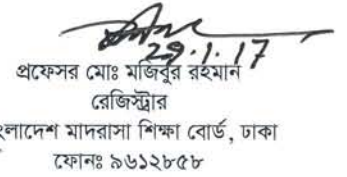 29.1.17
প্রফেসর মোঃ মজিবুর রহমান
রেজিস্ট্রার
বাংলাদেশ মাদরাসা শিক্ষা বোর্ড, ঢাকা
ফোনঃ ৯৬১২৮৫৮